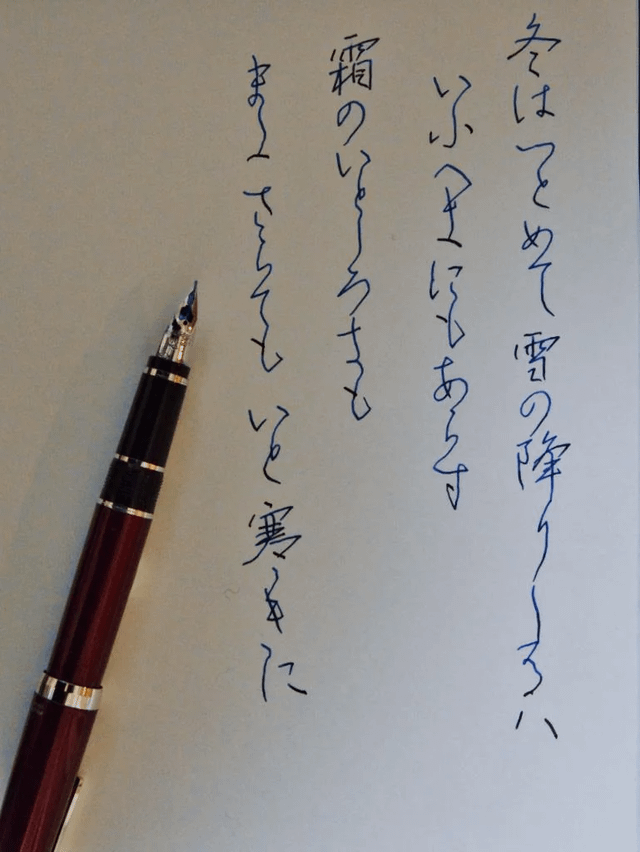 冬はつとめて雪の降りしるハ
いふへきにもあらす
霜のいとしろきも
またさらても いと寒きに